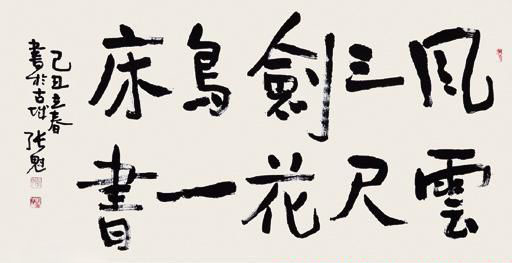 风雲
三尺
劍花
鳥一
床書
己丑立春
書於古城 张魁